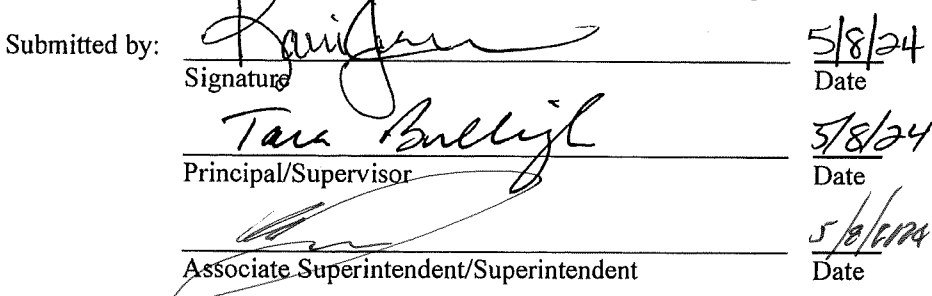 Submitted by: 5/8/24
Signature Date
Tara 5/8/24
Principal/Supervisor Date
Associate Superintendent/Superintendent Date